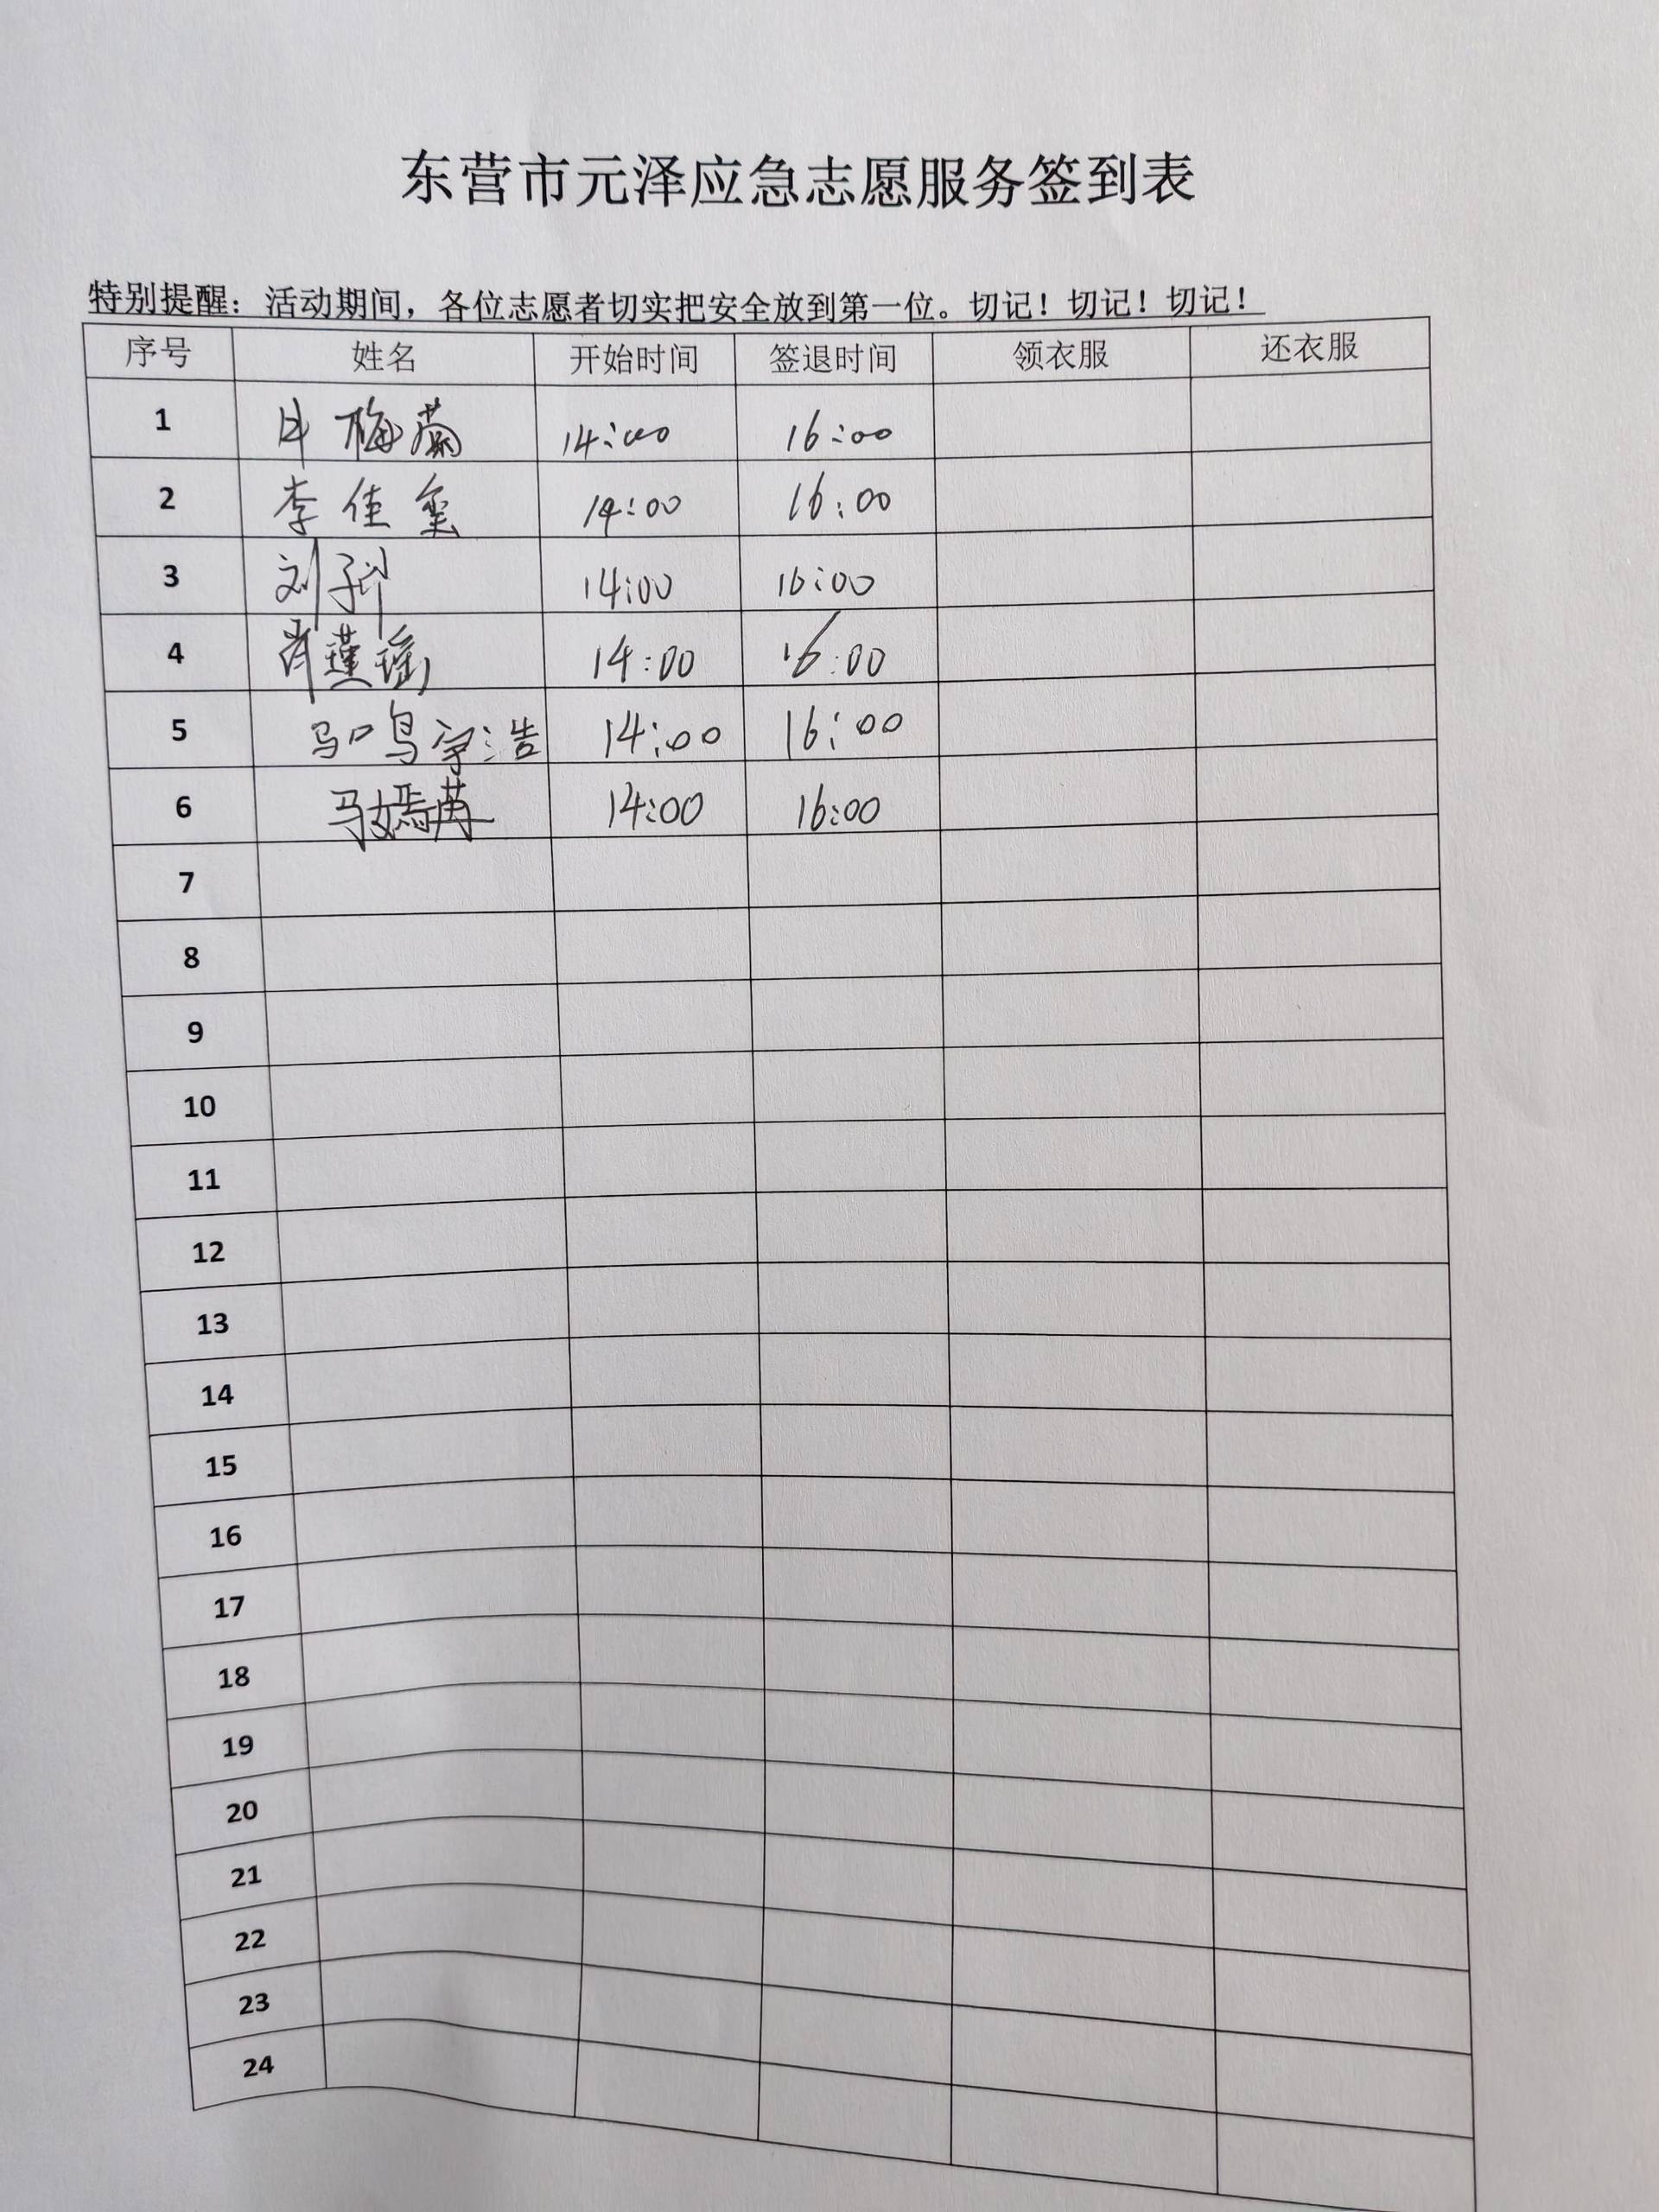 东营市元泽应急志愿服务签到表
特别提醒：活动期间，各位志愿者切实把安全放到第一位。切记！切记！切记！
序号 姓名 开始时间 签退时间 领衣服 还衣服
1 梅菊 14:00 16:00
2 李佳玺 14:00 16:00
3 刘子 14:00 16:00
4 肖瑾瑶 14:00 16:00
5 马鸣宇浩 14:00 16:00
6 马嫣苒 14:00 16:00
7
8
9
10
11
12
13
14
15
16
17
18
19
20
21
22
23
24